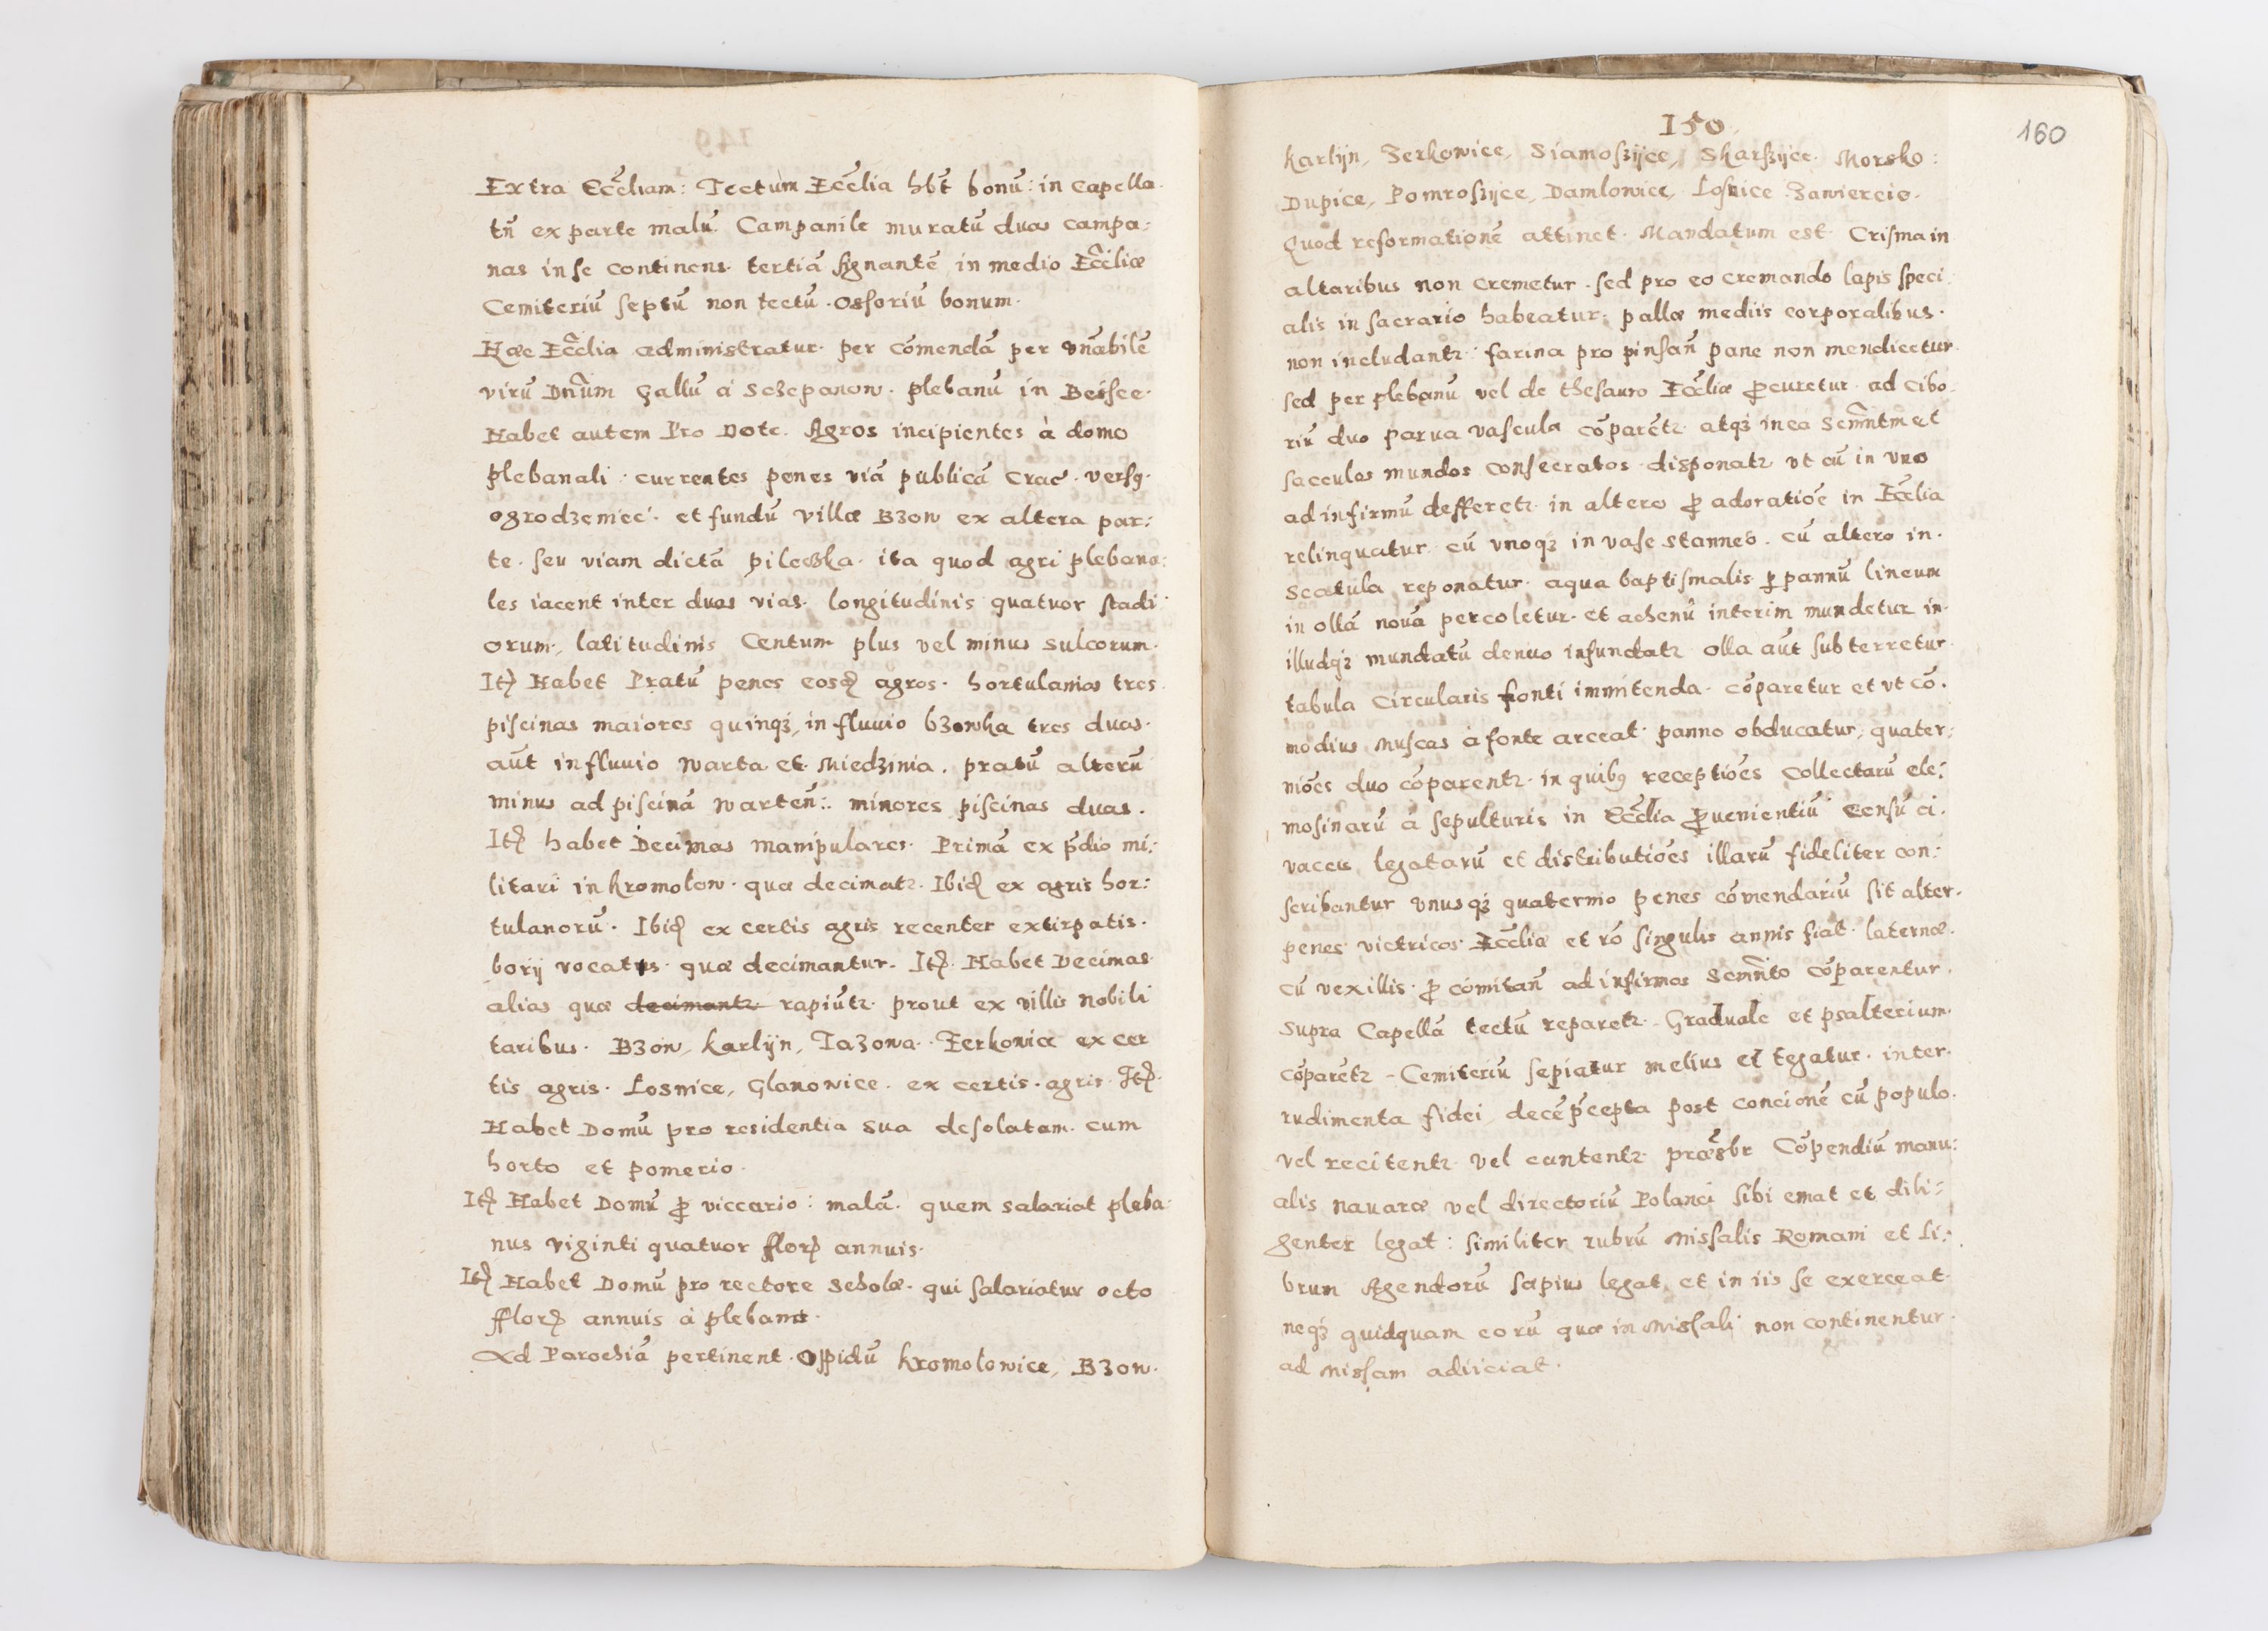 Extra Ecc̃liam: Tectum Ecc̃lia hb̃t bonũ: in capella
tñ ex parte malũ. Campanile muratũ duas campa:
nas in se continens. tertiã signantẽ in medio Ecc̃liæ
Cemiteriũ septũ non tectũ. Osforiũ bonum.
Hæc Ecc̃lia administratur. per cõmendã per vnãbilẽ
virũ Dnũm Gallũ à Sczepanow. plebanũ in Beisce.
Habet autem Pro Dote. Agros incipientes à domo
plebanali. currentes penes viã publicã Crac̃. versꝯ.
ogrodzeniec. et fundũ villæ Bzow ex altera par:
te. seu viam dictã pileczka. ita quod agri plebana:
les iacent inter duas vias. longitudinis quatuor stadi
orum, latitudinis Centum plus vel minus sulcorum.
Itꝫ Habet Pratũ penes eosdꝫ agros. hortulanias tres.
piscinas maiores quinqꝫ, in fluuio bzowka tres duas.
aũt in fluuio warta et Miedzinia. pratũ alterũ
minus ad piscinã wartẽn:. minores piscinas duas.
Itꝫ habet Decimas manipulares. Primã ex p̃dio mi:
litari in kromolow. quæ decimatꝛ. Ibidꝫ ex agris hor:
tulanorũ. Ibidꝫ ex certis agris recenter extirpatis.
borij vocatis. quæ decimantur. Itꝫ. Habet Decimas
alias quæ decimantꝛ rapiũtꝛ. prout ex villis nobili
taribus. Bzow, karlijn, Iazowa. Zerkowice ex cer
tis agris. Losnice, Glanowice. ex certis. agris. Itꝫ.
Habet Domũ pro residentia sua desolatam. cum
horto et pomerio.
Itꝫ Habet Domũ ꝓ viccario: malã. quem salariat pleba
nus viginti quatuor florꝫ annuis.
Itꝫ Habet Domũ pro rectore Scholæ. qui salariatur octo
fflorꝫ annuis à plebano.
Ad Parochiã pertinent. Oppidũ kromolowice, Bzow.
150
160
karlijn, Zerkowice, Siamoszijce, Skarszijce. Morsko:
Dupice, Pomroszijce, Damlowice, Losnice. Zawiercie.
Quod reformationẽ attinet. Mandatum est. Crisma in
altaribus non cremetur. sed pro eo cremando lapis speci
alis in sacrario habeatur: pallæ mediis corporalibus.
non includantꝛ: farina pro pinsañ pane non mendicetur
sed per plebanũ vel de thesauro Ecc̃liæ ꝓcuretur. ad cibo
riũ duo parua vascula cõparẽtꝛ. atqꝫ in ea Scm̃ntm et
sacculos mundos consecratos. disponatꝛ vt cũ in vno
ad infirmũ defferetꝛ. in altero ꝓ adoratiõe in Ecc̃lia
relinquatur. cũ vnoqꝫ in vase stanneo. cũ altero in.
Scatula reponatur. aqua baptismalis ꝑ pannũ lineum
in ollã nouã percoletur. et achenũ interim mundetur in
illudqꝫ mundatũ denuo infundatꝛ olla aũt subterretur.
tabula circularis fonti immitenda. cõparetur et vt cõ.
modius muscas à fonte arceat. panno obducatur, quater:
niões duo cõparentꝛ. in quibꝯ receptiões collectarũ ele:
mosinarũ à sepulturis in Ecc̃lia ꝓuenientiũ censũ à.
vaccis legatarũ et distributiões illarũ fideliter con:
scribantur vnusqꝫ quaternio penes cõmendariũ sit alter.
penes victricos. Ecc̃liæ et rõ singulis annis fiat. laternæ.
cũ vexillis. ꝓ comitañ ad infirmos Scm̃nto cõparentur.
Supra Capellã tectũ reparetꝛ. Graduale et psalterium.
cõparẽtꝛ - Cemiteriũ sepiatur melius et tegatur. inter.
rudimenta fidei, decẽ p̃cepta post concionẽ cũ populo.
vel recitentꝛ. vel cantentꝛ. præs̃br Cõpendiũ manu:
alis nauaræ vel directoriũ Polanci sibi emat et dili:
genter legat: similiter rubrũ Missalis Romani et li:
brum Agendorũ sæpius legat, et in iis se exerceat.
neqꝫ quidquam eorũ quæ in Missali non continentur.
ad Missam adiiciat.